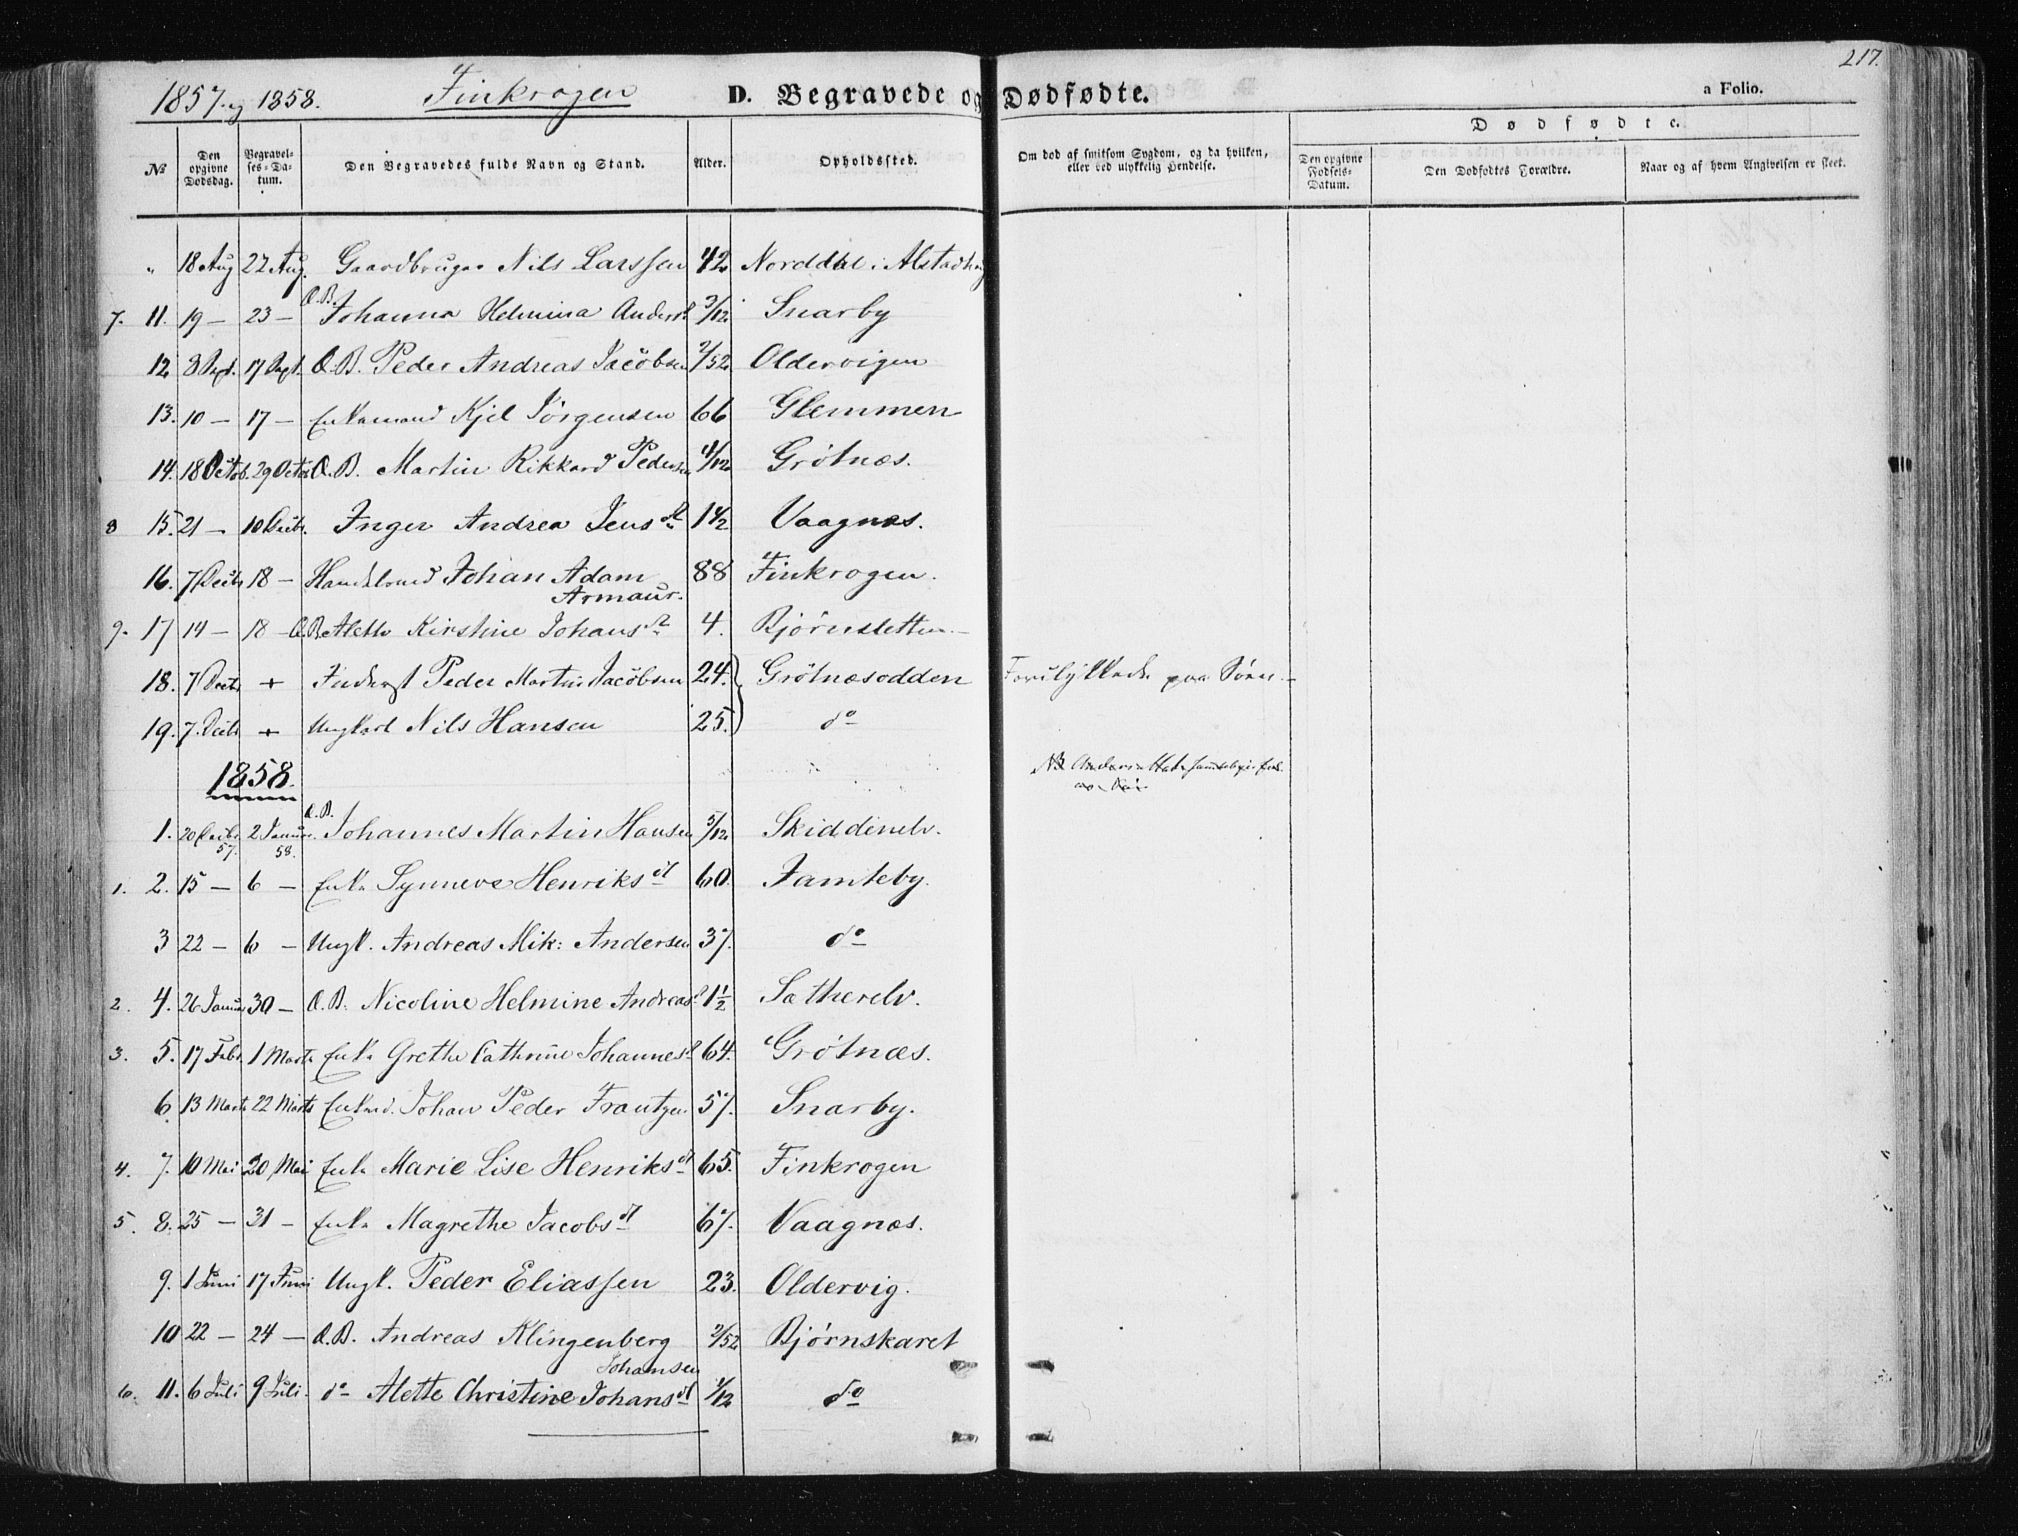 217.
1857. og 1858. Finkrogen D. Begravede og Dødfødte. a Folio.
No Den opgivne Dødsdag. Begravelses-Datum. Den Begravedes fulde Navn og Stand. Alder. Opholdssted. Om død af smitsom Sygdom, og da hvilken, eller ved ulykkelig Hendelse. Dødfødte. Den opgivne Fødsels-Datum. Den Dødfødtes Forældre. Naar og af hvem Angivelsen er skeet.
" 18 Aug 22 Aug. Gaardbruger Nils Larssen 42 Norddal i Alstadhoug
7. 11. 19 — 23 — Q.B. Johanna Helmina Andersd 3/12 Snarby
12 3 Sept. 17 Sept. Q.B. Peder Andreas Jacobsen 2/52 Oldervigen
13. 10 — 17 — Enkemand Kjel Jørgensen 66 Glemmen
14. 18 Octob. 29 Octob Q.B. Martin Rikkard Pedersen 4/12 Grötnæs.
8 15. 21 — 10 Decbr. Inger Andrea Jensdt 1 1/2 Vaagnæs.
16. 7 Decbr 18 — Handelsmd Johan Adam Armaur. 88 Finkrogen.
9. 17 14 — 18 — Q.B. Alette Kirstine Johansdt 4. Bjørnsletten —
18. 7 Decbr + Inderst Peder Martin Jacobsen 24. Grötnæsodden Forulykkede paa Søen. —
19. 7. Decbr + Ungkarl Nils Hansen 25. do
1858. NB Anders
1. 20 Decbr. 57. 2 Januar. 58. Q.B. Johannes Martin Hansen 5/12 Skiddenelv.
1. 2. 15 — 6 — Enke Synneve Henriksdt 60. Jamteby.
3 22 — 6 — Ungk. Andreas Mik: Andersen 37. do
2. 4. 26 Januar 30 — Q.B. Nicoline Helmine Andreasd 1 1/2 Satherelv.
3. 5. 17 Febr. 1 Marts Enke Grethe Cathrine Johannesd 64. Grötnæs.
6. 13 Marts 22 Marts Enkmd. Johan Peder Frantzen 57. Snarby.
4. 7. 10 Mai 20 Mai Enke Marie Lise Henriksdt 65. Finkrogen
5. 8. 25 — 31 — Enke Magrethe Jacobsdt 67. Vaagnæs.
9. 1 Juni 17 Juni Ungk. Peder Eliassen 23. Oldervig.
10 22 — 24 — Q.B. Andreas Klingenberg Johansen 2/52 Bjørnskaret
6. 11. 6 Juli 9 Juli. do Alette Christine Johansdt 1/12 do